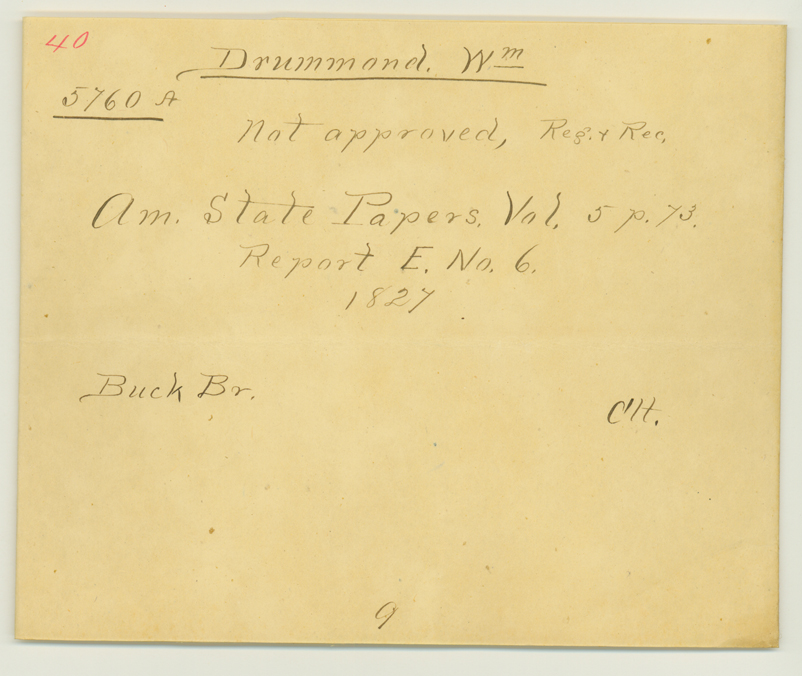 40
Drummond. Wm
5760 A
Not approved, Reg. & Rec,
Am. State Papers. Vol. 5 p. 73.
Report E. No. 6.
1827
Buck Br.
CH.
9